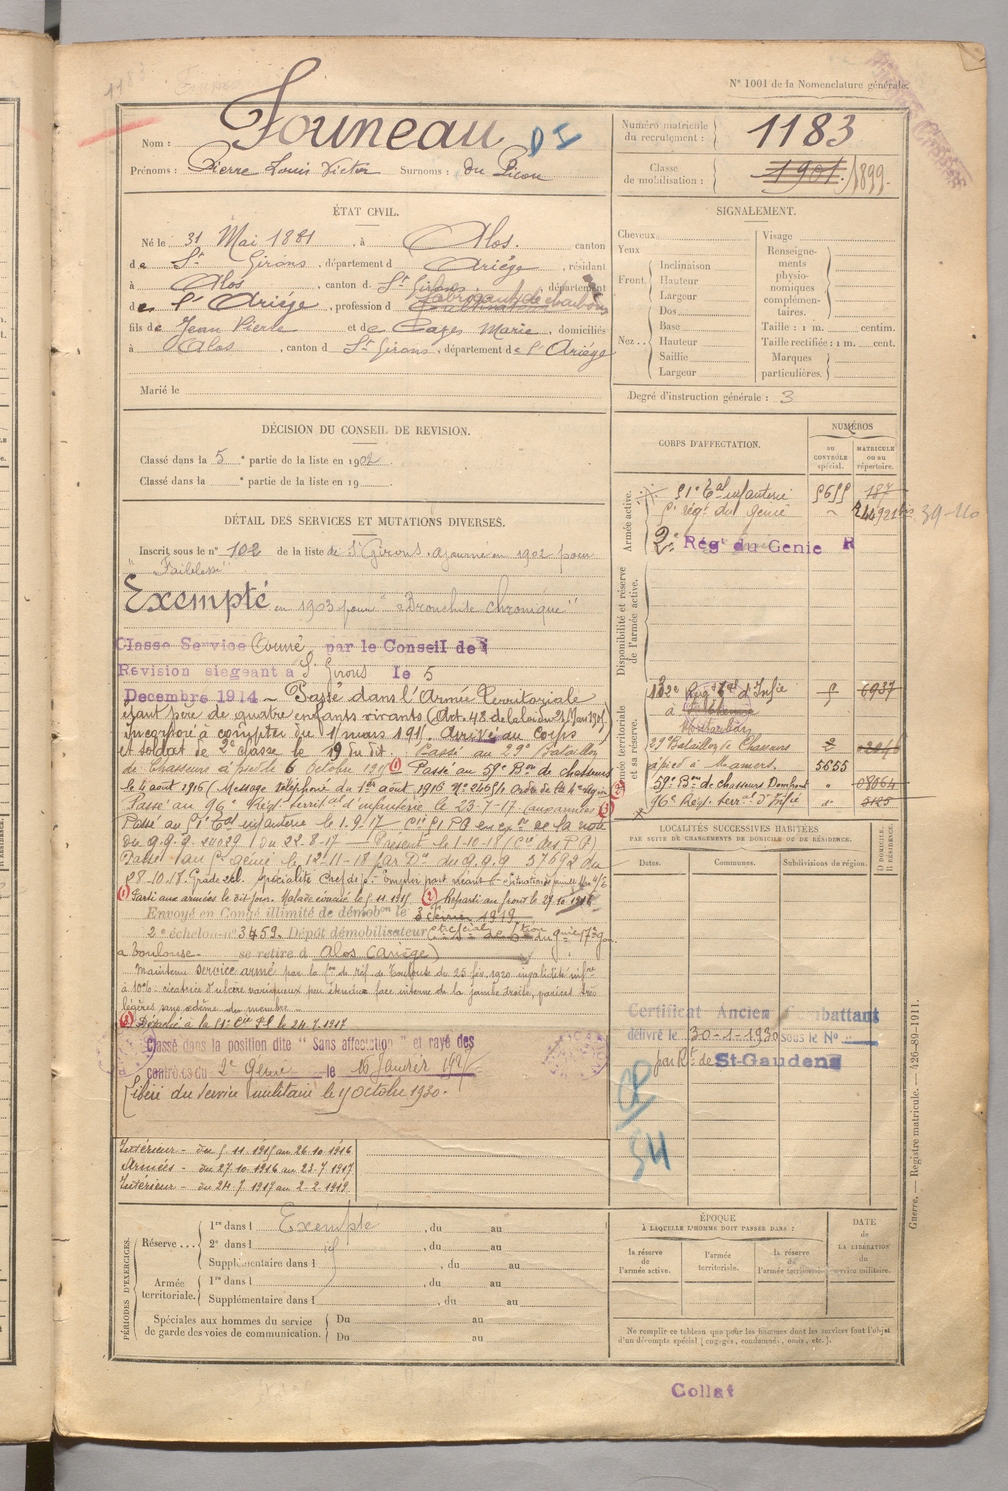 N° 1001 de la Nomenclature générale.
Nom : Founeau DI
Prénoms : Pierre Louis Victor Surnoms : du Picou
Numéro matricule du recrutement : 1183
Classe de mobilisation : 1901. 1899.
ÉTAT CIVIL.
Né le 31 Mai 1881, à Alos. canton
de St Girons, département d Ariège, résidant
à Alos, canton d St Girons, département
de l'Ariège, profession d fabricant de charbon
fils de Jean Pierre et de Cazes Marie, domiciliés
à Alos, canton d St Girons, département de l'Ariège
Marié le
SIGNALEMENT.
Cheveux
Yeux
Front. Inclinaison
Hauteur
Largeur
Nez... Dos
Base
Hauteur
Saillie
Largeur
Visage
Renseignements physionomiques complémentaires.
Taille : 1 m. centim.
Taille rectifiée : 1 m. cent.
Marques particulières.
Degré d'instruction générale : 3
DÉCISION DU CONSEIL DE REVISION.
Classé dans la 5e partie de la liste en 1902
Classé dans la e partie de la liste en 19
DÉTAIL DES SERVICES ET MUTATIONS DIVERSES.
Inscrit sous le n° 102 de la liste de St Girons. ajourné en 1902 pour
"Faiblesse"
Exempté en 1903 pour "Bronchite chronique"
Classe Service Armé par le Conseil de
Revision siegeant a St Girons le 5
Decembre 1914 - Passé dans l'Armée Territoriale
étant père de quatre enfants vivants
Incorporé à compter du 1 mars 1915. Arrivé au corps
et soldat de 2e classe le 19 du dit. Passé au 29e Bataillon
de Chasseurs à pied le 6 Octobre 1915 (1) Passé au 59e Bon de chasseurs
le 4 août 1916 (Message téléphoné du 1er août 1916
Passé au 96e Régt territal d'infanterie le 23-7-17 (aux armées) (3)
Passé au 51e Ral infanterie le 1.9.17
du G.Q.G. du 22.8.17 - Présent le 1-10-18
le 12-11-18 par Dn du G.Q.G. 57692 du
28.10.18.
(1) Parti aux armées le dit jour. Malade évacué le 5.11.1915 (2) Reparti au front le 27.10.1916
Envoyé en Congé illimité de démobon le 3 février 1919
2e échelon n° 3459. Dépôt démobilisateur
à Toulouse. se retire à Alos (Ariège)
Maintenu service armé par la Con de réf. de Toulouse du 25 fév. 1920 invalidité infre
à 10% cicatrice d'ulcère variqueux peu étendue face interne de la jambe droite, varices très
légères sans œdème du membre.
(3) Détaché à la 51e Cie P.G. le 24.7.1917
Classé dans la position dite "Sans affectation" et rayé des
contrôles du 2e Génie le 15 Janvier 1927
Libéré du service militaire le 15 Octobre 1930.
Intérieur - du 5.11.1915 au 26.10.1916
Armées - du 27.10.1916 au 23.7.1917
Intérieur - du 24.7.1917 au 2-2-1919
CORPS D'AFFECTATION.
NUMÉROS
AU CONTRÔLE spécial.
MATRICULE ou au répertoire.
Armée active.
51e Ral infanterie 187
régt du génie
2e Rég du Genie R
39-40
Disponibilité et réserve de l'armée active.
Armée territoriale et sa réserve.
132e Regt Tal d'Infie 6937
à Montauban
29 Bataillon de Chasseurs
à pied à Mamers. 5655
59e Bon de chasseurs Domfront 08064
96e Rég. terral d'Infie 3125
LOCALITÉS SUCCESSIVES HABITÉES
PAR SUITE DE CHANGEMENTS DE DOMICILE OU DE RÉSIDENCE.
Dates. Communes. Subdivisions de région. D DOMICILE. R RÉSIDENCE.
Certificat Ancien Combattant
délivré le 30-1-1930 sous le No
par Rt de St-Gaudens
CP
54
PÉRIODES D'EXERCICES.
Réserve... 1re dans l Exempté, du au
2e dans l id, du au
Supplémentaire dans l, du au
Armée territoriale. 1re dans l, du au
Supplémentaire dans l, du au
Spéciales aux hommes du service de garde des voies de communication. Du au
Du au
ÉPOQUE
À LAQUELLE L'HOMME DOIT PASSER DANS :
la réserve de l'armée active.
l'armée territoriale.
la réserve de l'armée territoriale
DATE de LA LIBÉRATION du service militaire.
Ne remplir ce tableau que pour les hommes dont les services font l'objet
d'un décompte spécial (engagés, condamnés, omis, etc.).
Guerre. — Registre matricule. — 426-89-1911.
Collat